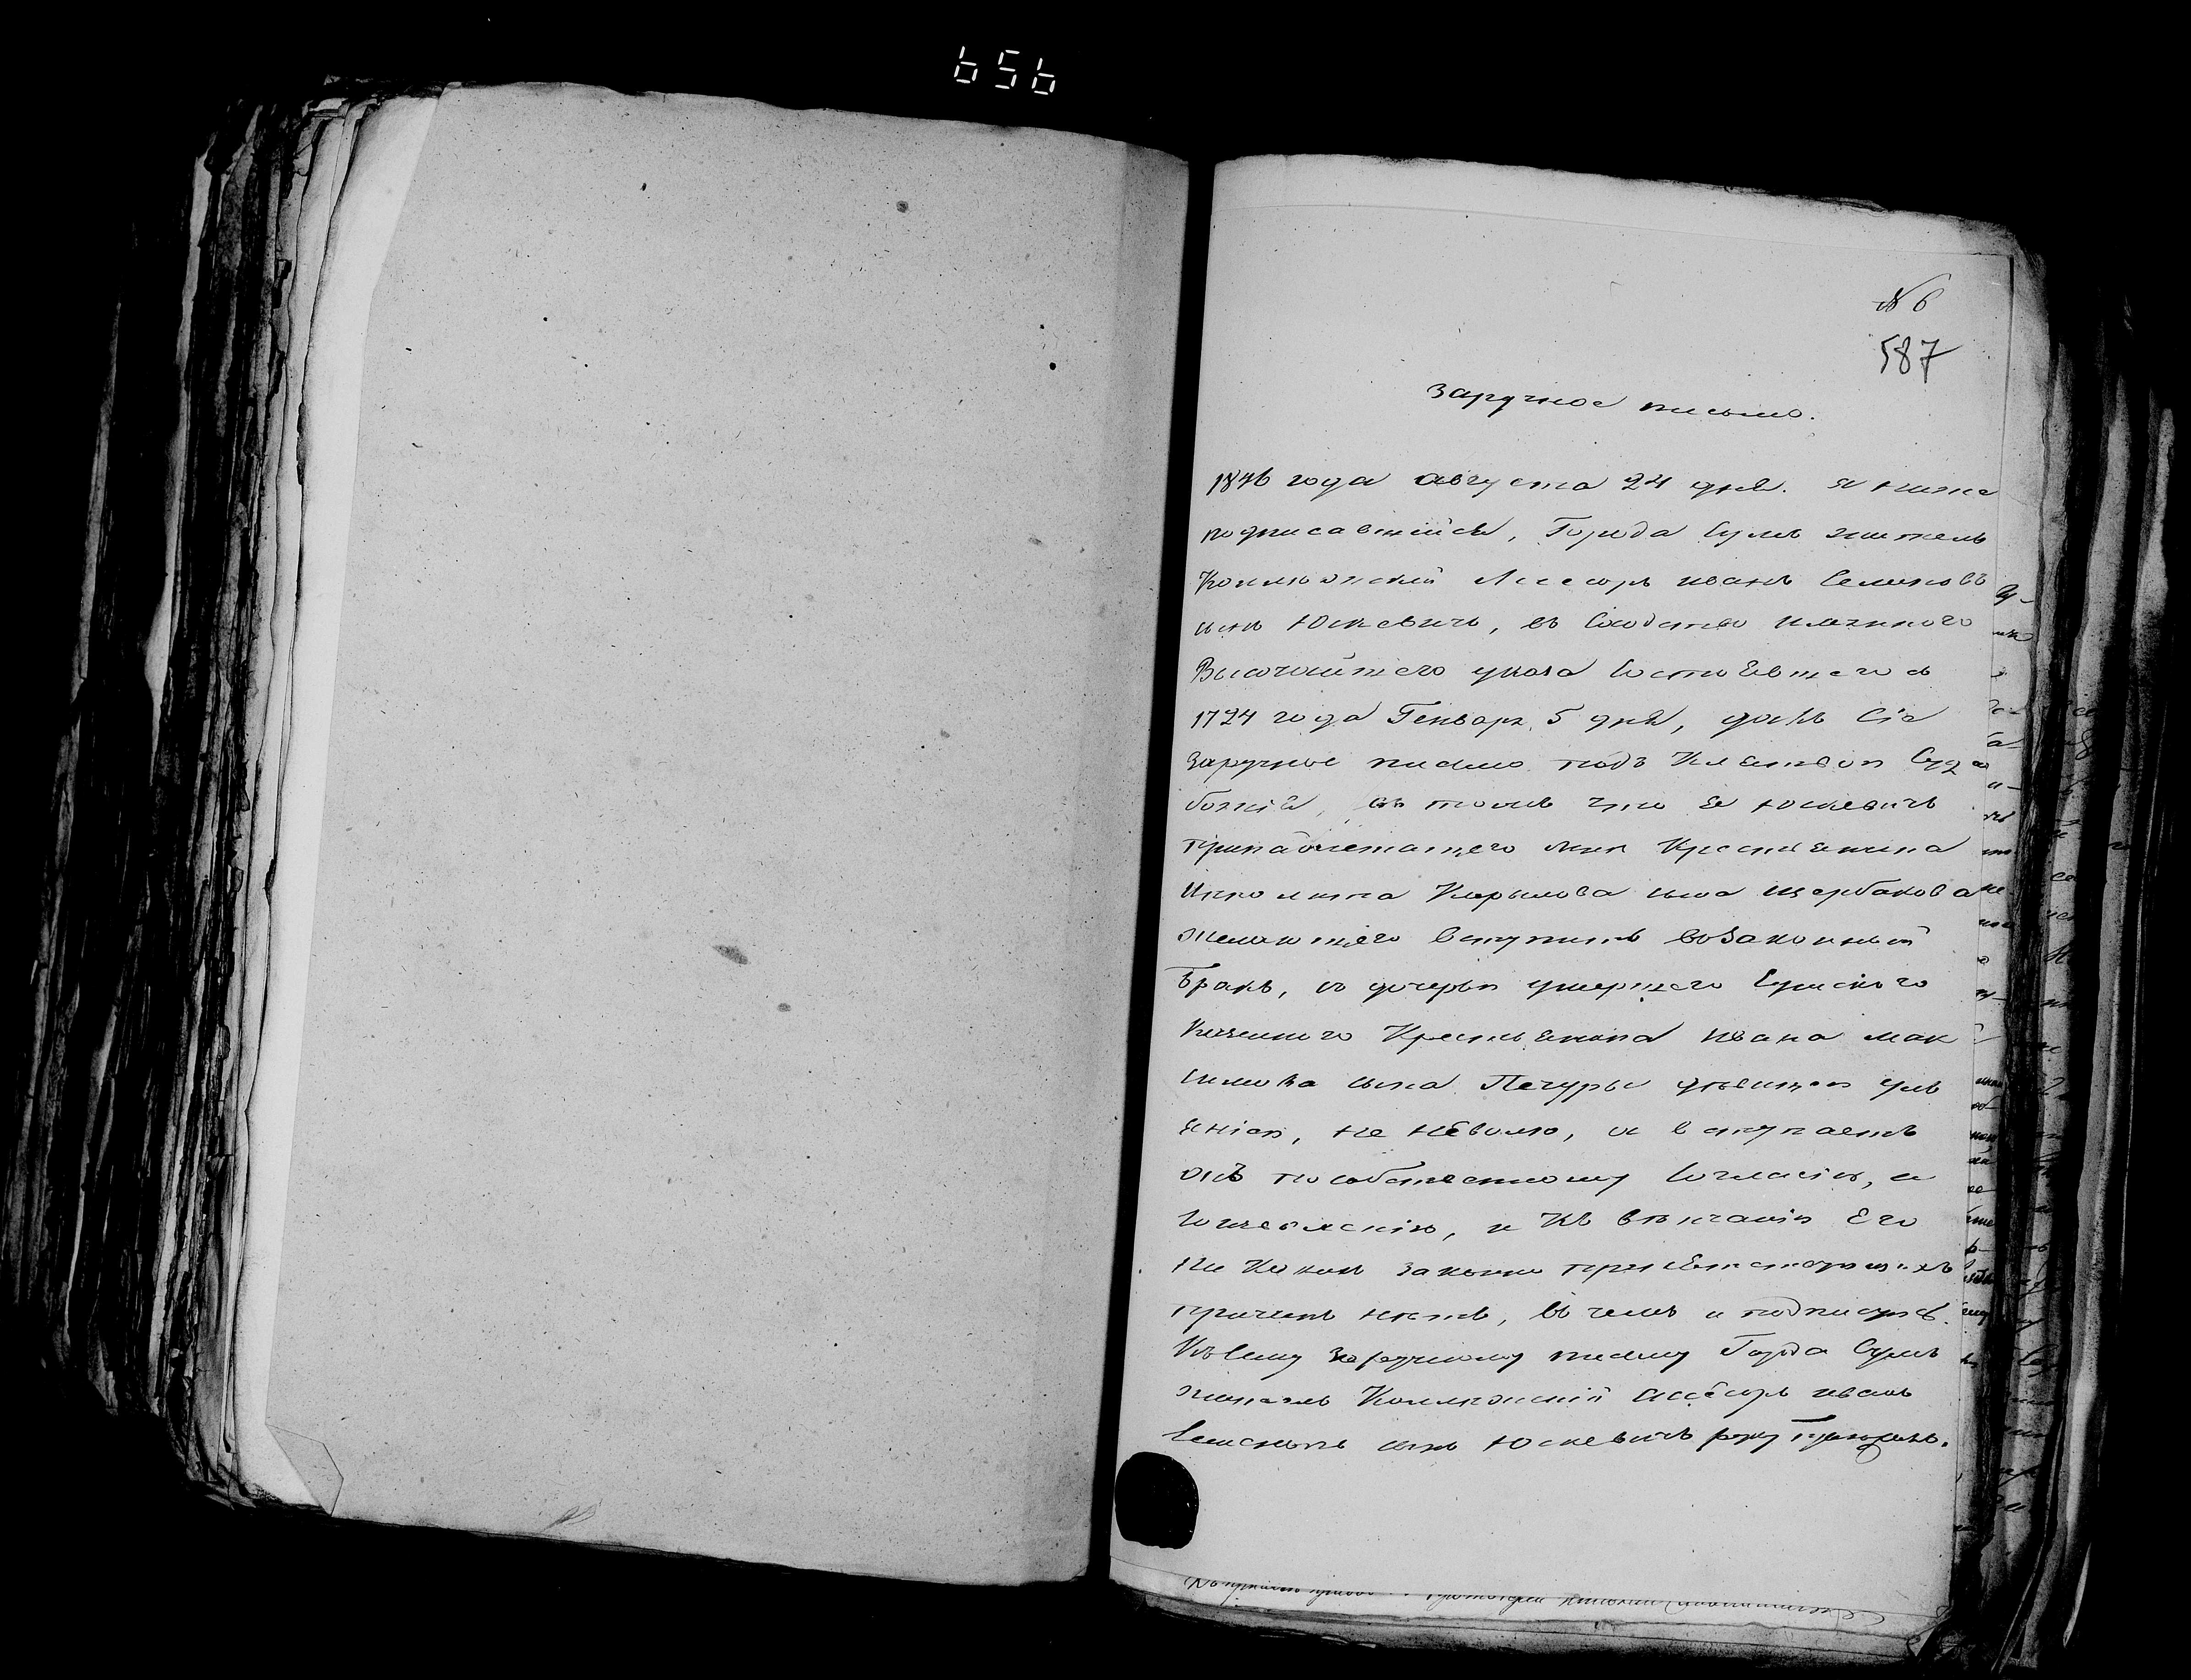 656
№ 6
587
заручное письмо.
1846 года августа 24 дня. я ниже
подписавшійся, Города Сумъ житель
Коллежскій Ассесоръ иванъ Семеновъ
сынъ Юскевичъ, въ Сходство имянного
Высочайшего указа состоявшегося
1724 года Генваря 5 дня, далъ Сіе
заручное письмо подъ Клятвою Суда
божія, въ томъ что я Юскевичъ
принадлежащего мнѣ Крестьянина
Иполита Кирылова сына щербакова
желающего вступить возаконный
бракъ, съ дочерью умершего Сумского
Казенного Крестьянина Ивана мак
симова сына Печуры дѣвицею уль
яніею, не неволю, а вступаетъ
онъ пособственному согласію, и
, и Къ вѣнчанію Его
ни Какихъ законно препятствующихъ
причинъ нѣтъ, въ чемъ и подписуюсь.
Ксему заручному письму Города Сумъ
житель Коллежскій ассесоръ иванъ
Семеновъ сынъ Юскевичъ руку приложилъ.